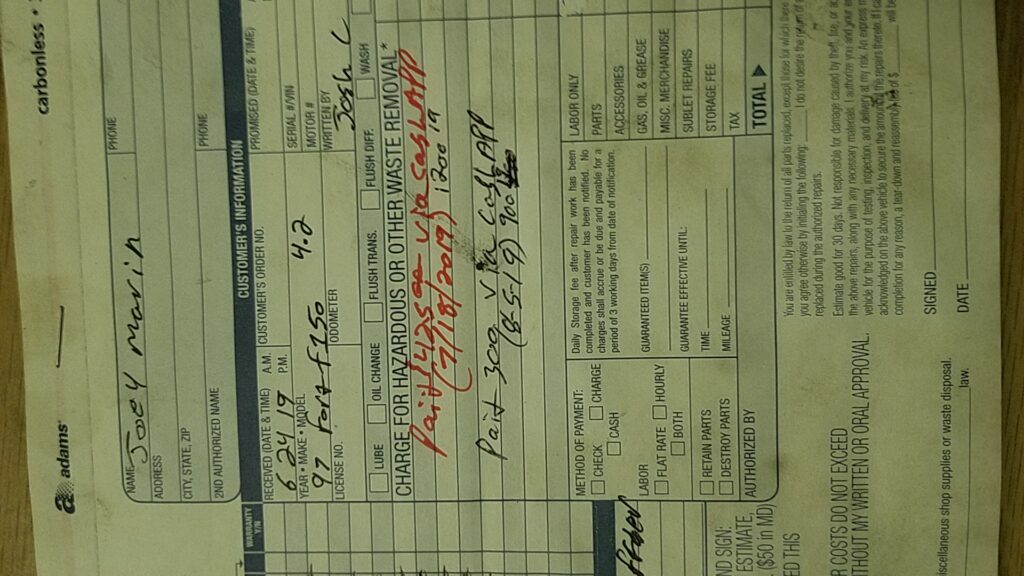 adams®
carbonless •
NAME Joey Marin
PHONE
ADDRESS
CITY, STATE, ZIP
2ND AUTHORIZED NAME
PHONE
CUSTOMER'S INFORMATION
RECEIVED (DATE & TIME) A.M. P.M. 6 24 19
CUSTOMER'S ORDER NO.
PROMISED (DATE & TIME)
YEAR • MAKE • MODEL 97 Ford F150 4.2
SERIAL #/VIN
MOTOR #
LICENSE NO.
ODOMETER
WRITTEN BY Josh C
LUBE
OIL CHANGE
FLUSH TRANS.
FLUSH DIFF.
WASH
CHARGE FOR HAZARDOUS OR OTHER WASTE REMOVAL*
Paid $425 via CashAPP
(7/18/2019) 1200
Paid 300 via Cash APP
(8-5-19) 900
METHOD OF PAYMENT:
CHECK
CHARGE
CASH
LABOR
FLAT RATE
HOURLY
BOTH
RETAIN PARTS
DESTROY PARTS
AUTHORIZED BY
Daily Storage fee after repair work has been
completed and customer has been notified. No
charges shall accrue or be due and payable for a
period of 3 working days from date of notification.
GUARANTEED ITEM(S)
GUARANTEE EFFECTIVE UNTIL:
TIME
MILEAGE
LABOR ONLY
PARTS
ACCESSORIES
GAS, OIL & GREASE
MISC. MERCHANDISE
SUBLET REPAIRS
STORAGE FEE
TAX
TOTAL
WARRANTY
Y/N
ND SIGN:
ESTIMATE,
($50 in MD)
ED THIS
R COSTS DO NOT EXCEED
THOUT MY WRITTEN OR ORAL APPROVAL.
You are entitled by law to the return of all parts replaced, except those for which there
you agree otherwise by initialing the following: I do not desire the return of
replaced during the authorized repairs.
Estimate good for 30 days. Not responsible for damage caused by theft, fire, or
the above repairs, along with any necessary materials. I authorize you and your
vehicle for the purpose of testing, inspection, and delivery at my risk. An express
acknowledged on the above vehicle to secure the amount of the repairs thereto. If I
completion for any reason, a tear-down and reassembly fee of $ will be
SIGNED
DATE
iscellaneous shop supplies or waste disposal.
law.